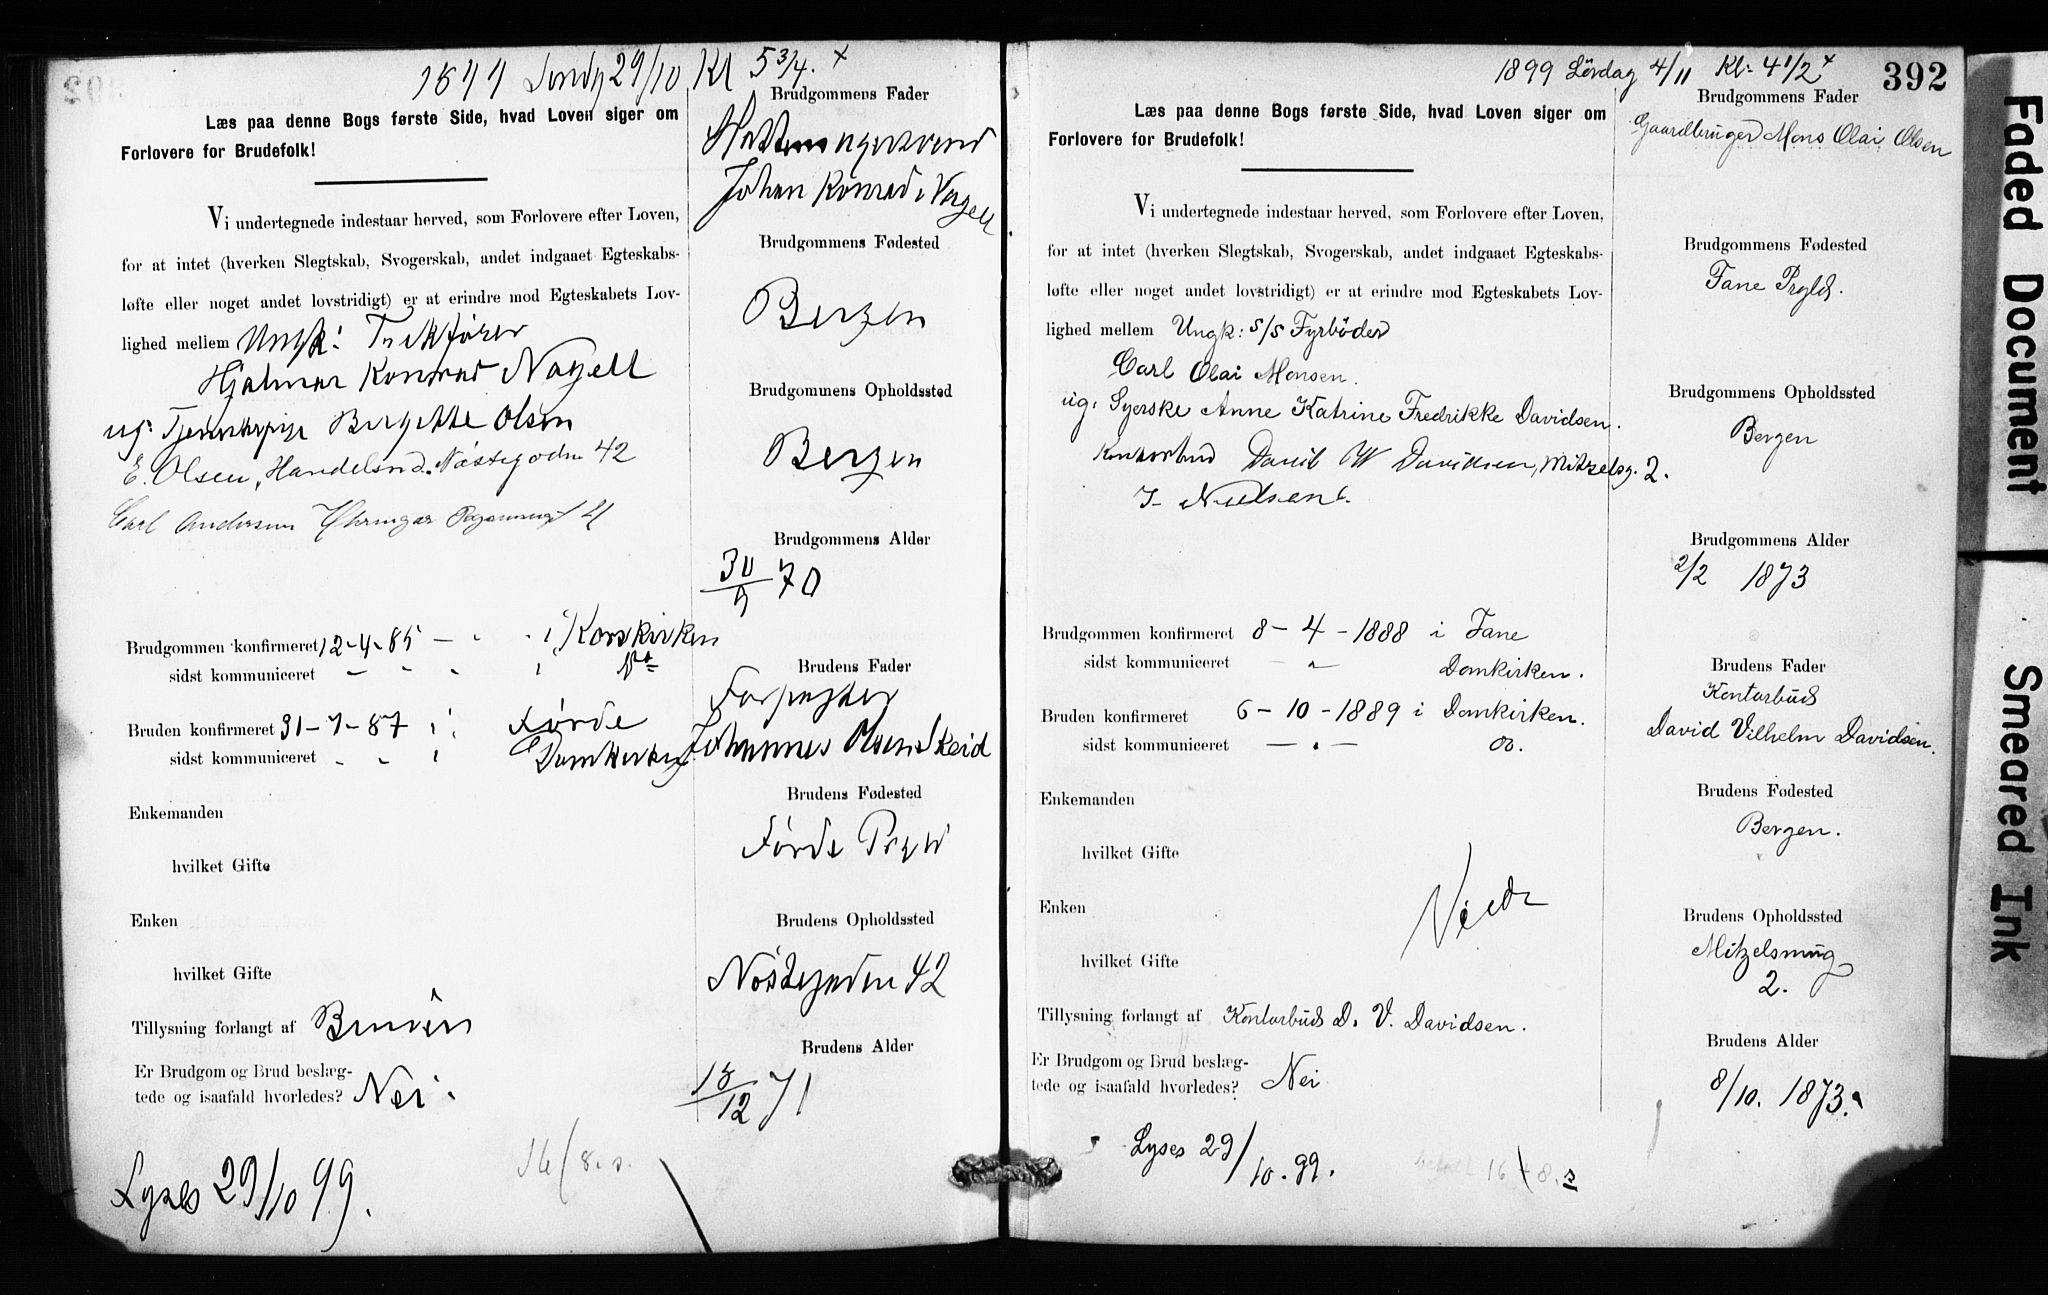 1899 Søndg 29/10 Kl 5 3/4. x
Læs paa denne Bogs første Side, hvad Loven siger om
Forlovere for Brudefolk!
Vi undertegnede indestaar herved, som Forlovere efter Loven,
for at intet (hverken Slegtskab, Svogerskab, andet indgaaet Egteskabs-
løfte eller noget andet lovstridigt) er at erindre mod Egteskabets Lov-
lighed mellem Ungk:
Hjalmar Konrad Nagell
ug. Tjenestepige Birgitte Olsen
E. Olsen, Handelsmd. Nøstegaden 42
Carl Andersen
Brudgommen konfirmeret 12-4-85 - " " i Korskirken
sidst kommuniceret - " " i
Bruden konfirmeret 31-7-87 i: Førde
sidst kommuniceret - " i Domkirken
Enkemanden
hvilket Gifte
Enken
hvilket Gifte
Tillysning forlangt af Bruden
Er Brudgom og Brud beslæg-
tede og isaafald hvorledes? Nei.
16/8. s.
Lyses 29/10 99.
Brudgommens Fader
Hattemagersvend
Johan Konrad Nagell
Brudgommens Fødested
Bergen
Brudgommens Opholdssted
Bergen
Brudgommens Alder
30/9 70
Brudens Fader
Forpagter
Johannes Olsen Skeid
Brudens Fødested
Førde Prgld
Brudens Opholdssted
Nøstegaden 42
Brudens Alder
18/12 71
1899 Lördag 4/11 Kl: 4 1/2 x
392
Læs paa denne Bogs første Side, hvad Loven siger om
Forlovere for Brudefolk!
Vi undertegnede indestaar herved, som Forlovere efter Loven,
for at intet (hverken Slegtskab, Svogerskab, andet indgaaet Egteskabs-
løfte eller noget andet lovstridigt) er at erindre mod Egteskabets Lov-
lighed mellem Ungk: s/s Fyrböder
Carl Olai Monsen.
ug. Syerske Anne Katrine Fredrikke Davidsen.
Kontorbud David W Davidsen, Mitzelsg. 2.
J. Nielsen
Brudgommen konfirmeret 8-4-1888 i Fane
sidst kommuniceret - " Domkirken.
Bruden konfirmeret 6-10-1889 i Domkirken.
sidst kommuniceret - " - do.
Enkemanden
hvilket Gifte
Enken
hvilket Gifte
Tillysning forlangt af Kontorbud D. V. Davidsen.
Er Brudgom og Brud beslæg-
tede og isaafald hvorledes? Nei
Lyses 29/10.99.
16/8. s
Brudgommens Fader
Gaardbruger Mons Olai Olsen
Brudgommens Fødested
Fane Prgld.
Brudgommens Opholdssted
Bergen
Brudgommens Alder
2/2 1873
Brudens Fader
Kontorbud
David Vilhelm Davidsen.
Brudens Fødested
Bergen.
Brudens Opholdssted
Mitzelsmug
2.
Brudens Alder
8/10. 1873.
Faded Document
Smeared Ink